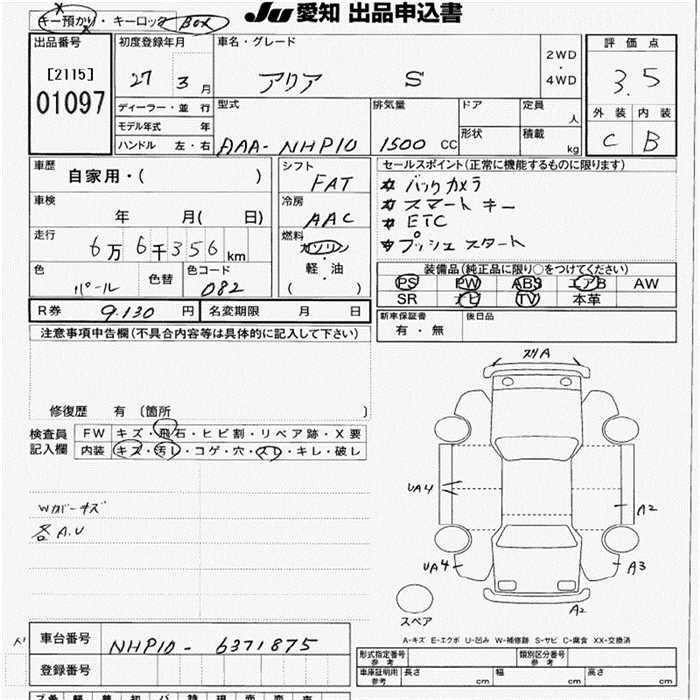 キー預かり・キーロック BOX
JU 愛知 出品申込書
出品番号
[2115]
01097
初度登録年月
27 3月
車名・グレード
アリア S
2WD
・
4WD
評価点
3.5
外装 内装
C B
ディーラー・並行
モデル年式 年
ハンドル 左・右
型式
AAA-NHP10
排気量
1500 CC
ドア
形状
定員 人
積載 kg
車歴
自家用・( )
車検
年 月( 日)
走行
6万6千356km
色
パール
色替
色コード
082
シフト
FAT
冷房
AAC
燃料
ガソリン
・
軽・油
( )
セールスポイント(正常に機能するものに限ります)
# バックカメラ
# スマートキー
# ETC
# プッシュスタート
装備品(純正品に限り○をつけてください)
PS PW ABS エアB AW
SR ナビ TV 本革
R券 9.130円
名変期限 月 日
新車保証書
有・無
後日品
注意事項申告欄(不具合内容等は具体的に記入して下さい)
修復歴 有 (箇所 )
検査員
記入欄
FW キズ・飛石・ヒビ割・リペア跡・X要
内装 キズ・汚レ・コゲ・穴・スレ・キレ・破レ
各A.U
スリA
UA4
A2
UA4
A3
A2
スペア
A-キズ E-エクボ U-凹み W-補修跡 S-サビ C-腐食 XX-交換済
車台番号
NHP10-6371875
登録番号
形式指定番号
参考
類別区分番号
参考
車庫証明用
参考
長さ cm
幅 cm
高さ cm